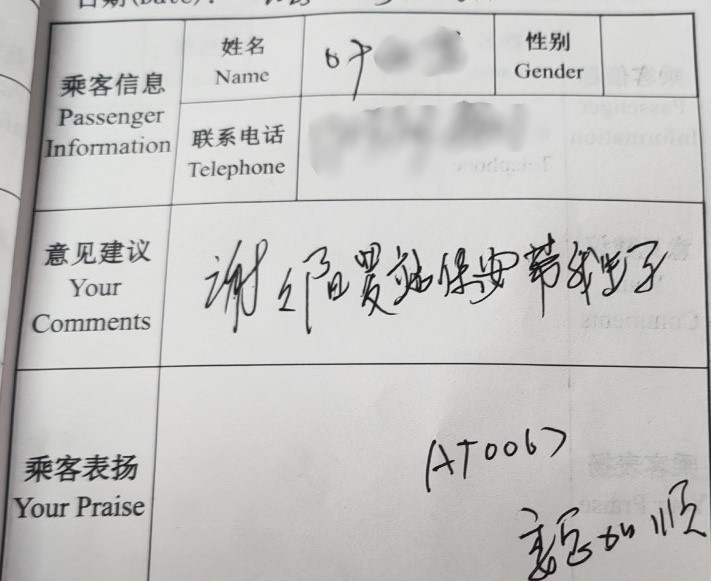 日期(Date):
姓名
Name
叶
性别
Gender
乘客信息
Passenger
Information
联系电话
Telephone
意见建议
Your
Comments
谢谢阳 站保安帮我
乘客表扬
Your Praise
AT0067
如顺